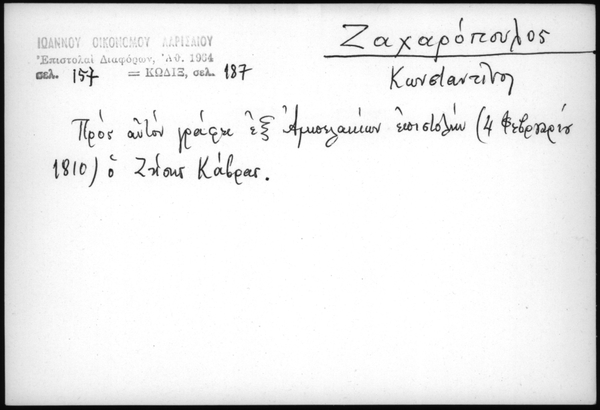 ΙΩΑΝΝΟΥ ΟΙΚΟΝΟΜΟΥ ΛΑΡΙΣΑΙΟΥ
Ἐπιστολαὶ Διαφόρων, Ἀθ. 1964
σελ. 157 = ΚΩΔΙΞ, σελ. 187
Ζαχαρόπουλος
Κωνσταντῖνος
Πρὸς αὐτὸν γράφει ἐξ Ἀμπελακίων ἐπιστολὴν (4 Φεβρουαρίου
1810) ὁ Ζήσης Κάβρας.